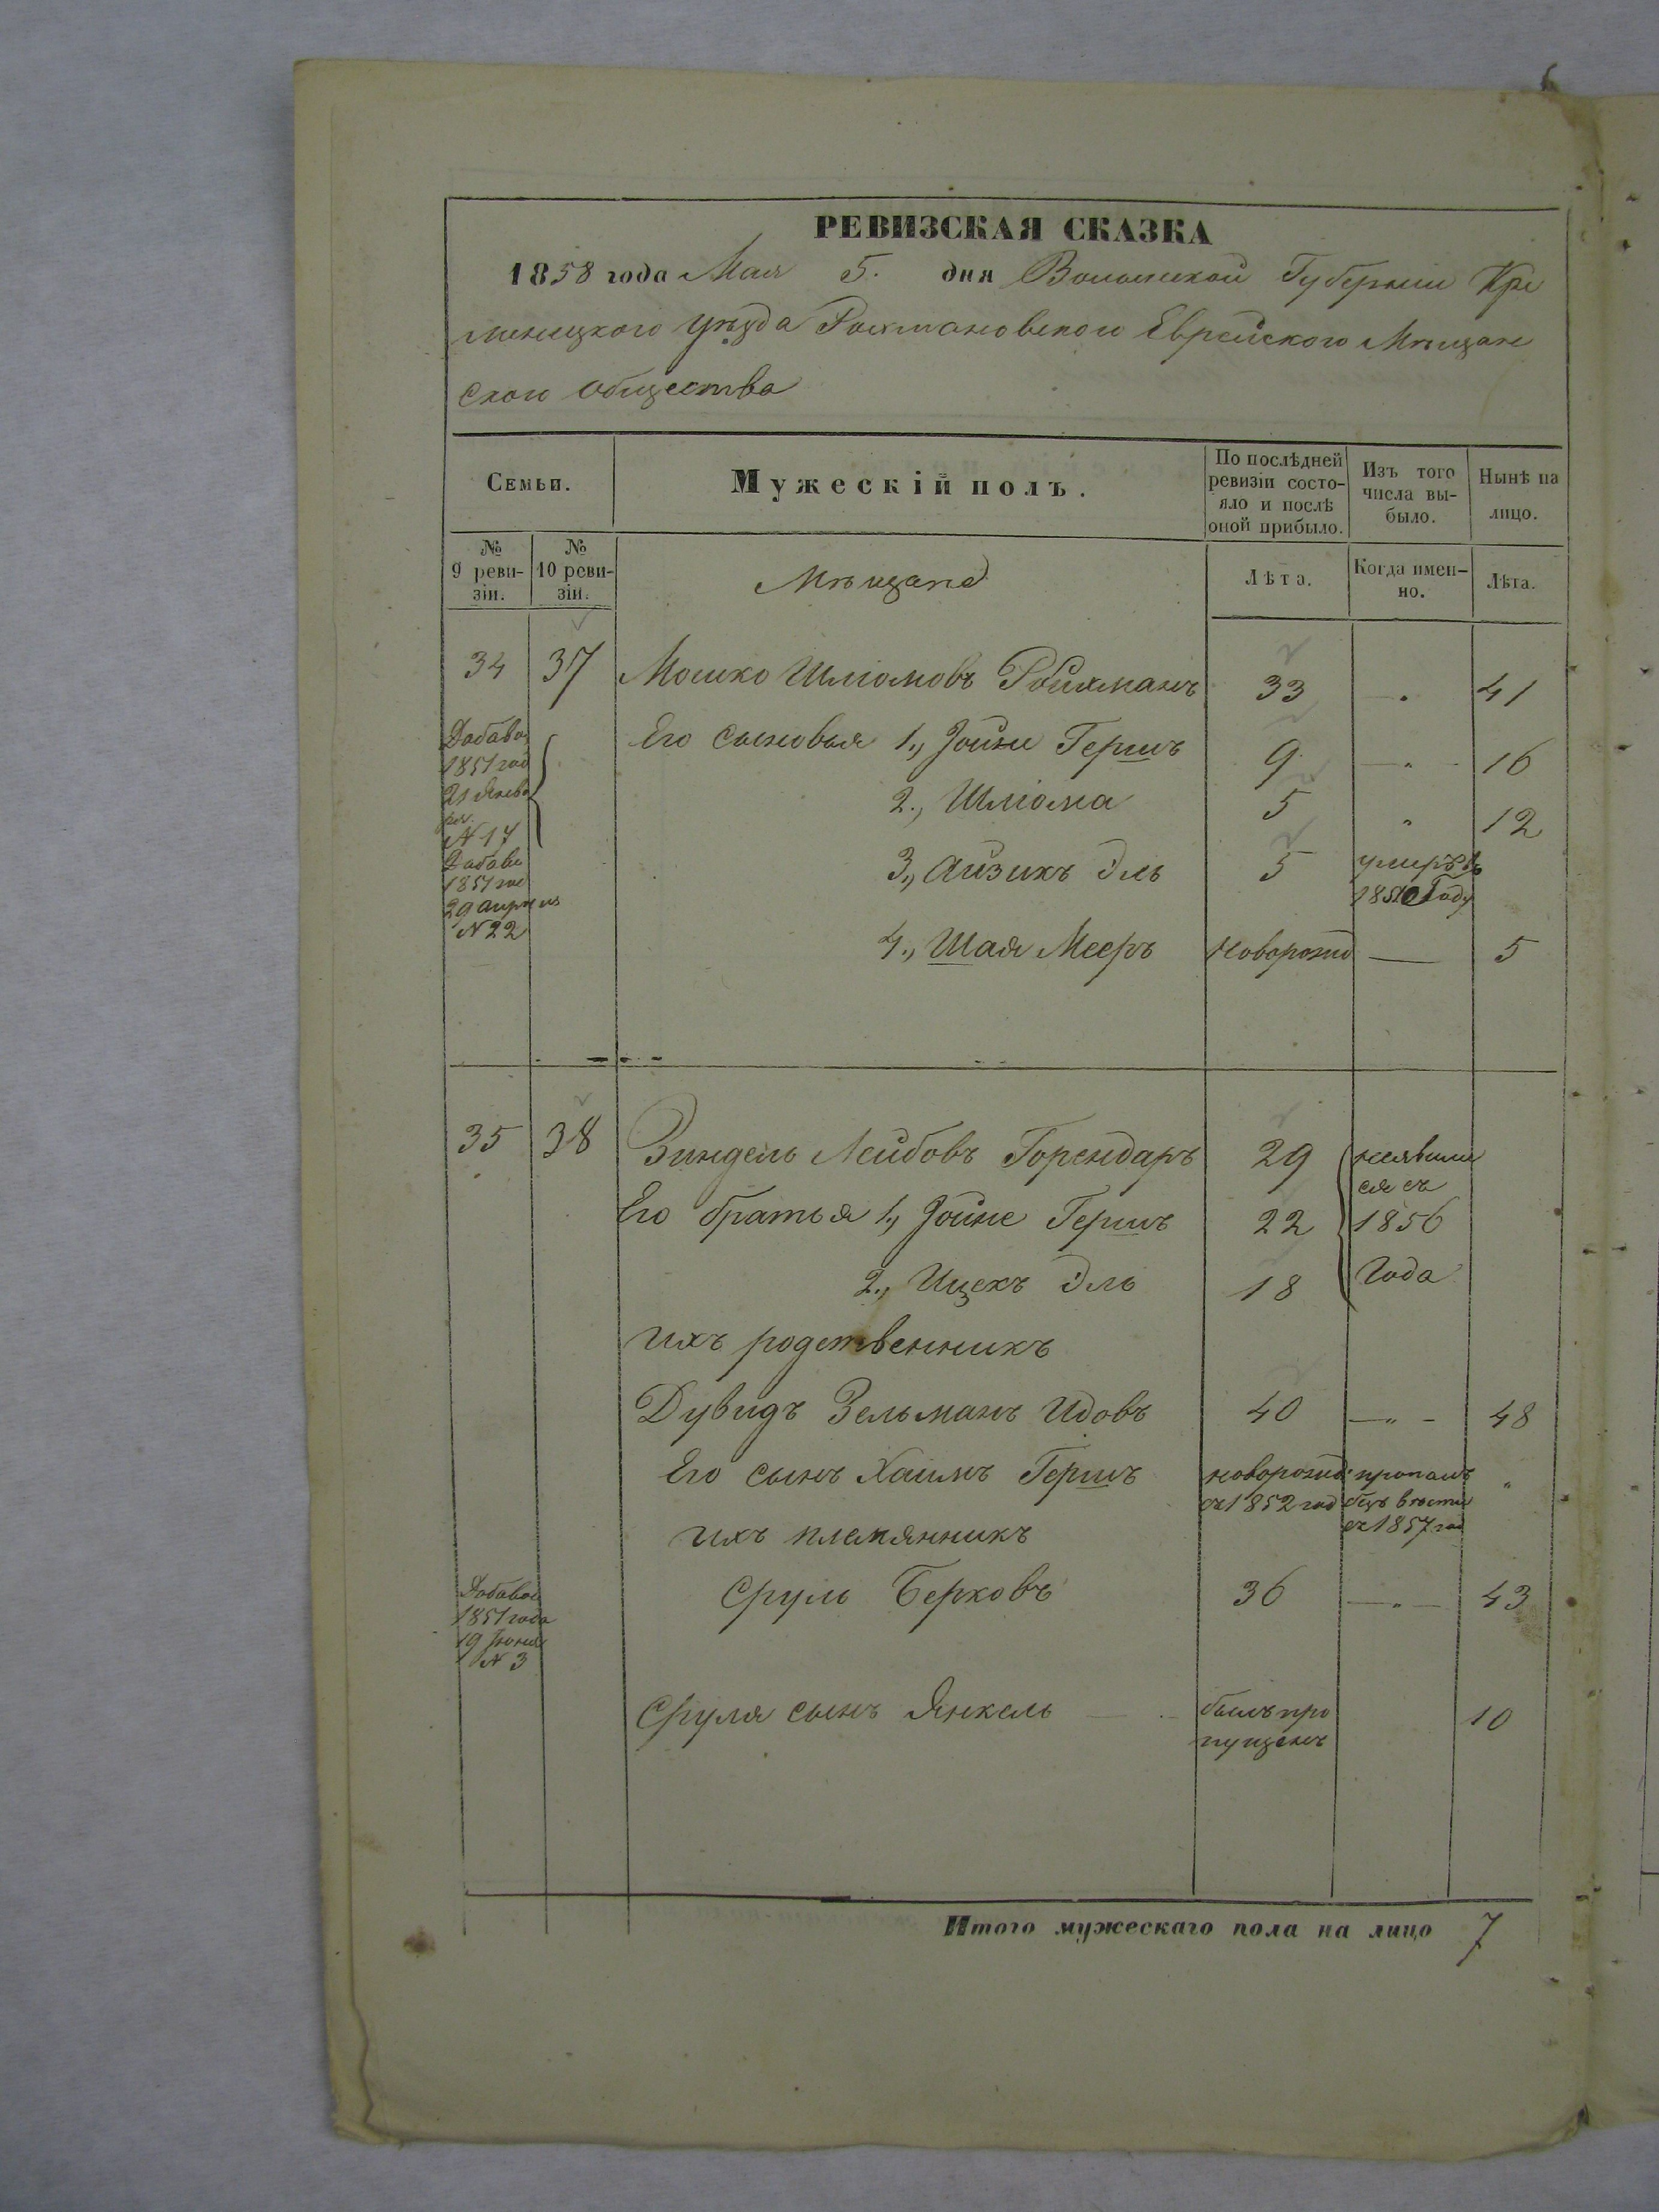 РЕВИЗСКАЯ СКАЗКА
1858 года Мая 5. дня Волынской Губерніи Кре
менецкого уѣзда Рохмановского Еврейского Мѣщан
ского общества
Семьи.
Мужескій полъ.
По послѣдней
ревизіи состо-
яло и послѣ
оной прибыло.
Изъ того
числа вы-
было.
Нынѣ на
лицо.
№
9 реви-
зіи.
№
10 реви-
зіи.
Мѣщане
Лѣта.
Когда имен-
но.
Лѣта.
34 37 Мошко Шліомовъ Ройхманъ 33 — „ 41
Добавоч
1851 год
21 Янва
ря.
N 17
Его сыновья 1., Іойне Гершъ 9 — „ - 16
2., Шліома 5 „ 12
Добаво
1851 год
29 апреля
N 22
3., Айзикъ Эль 5 умиръ въ
1850 Году
4., Шая Мееръ новорожд — 5
35 38 Зиндель Лейбовъ Горендаръ 29 неявили
ся съ
Его братья 1., Іойне Гершъ 22 1856
2., Ицекъ Эль 18 Года
ихъ родственникъ
Дувидъ Зельманъ Идовъ 40 — „ - 48
Его сынъ Хаимъ Гершъ новорожд: пропалъ „
съ 1852 год безъ вѣсти
съ 1857 год
ихъ племянникъ
Добавоч
1851 года
19 Іюня
N 3
Сруль Берковъ 36 — „ — 43
Сруля сынъ Янкель — - былъ про
пущенъ 10
Итого мужескаго пола на лицо 7